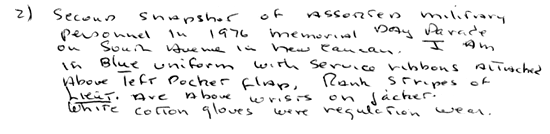 2) Second snapshot of assorted military
personnel in 1976 memorial Day Parade
on South Avenue in new Canaan. I Am
in Blue uniform with service ribbons attached
Above left Pocket flap, Rank stripes of
Lieut. Are Above wrists on jacket.
White cotton gloves were regulation wear.